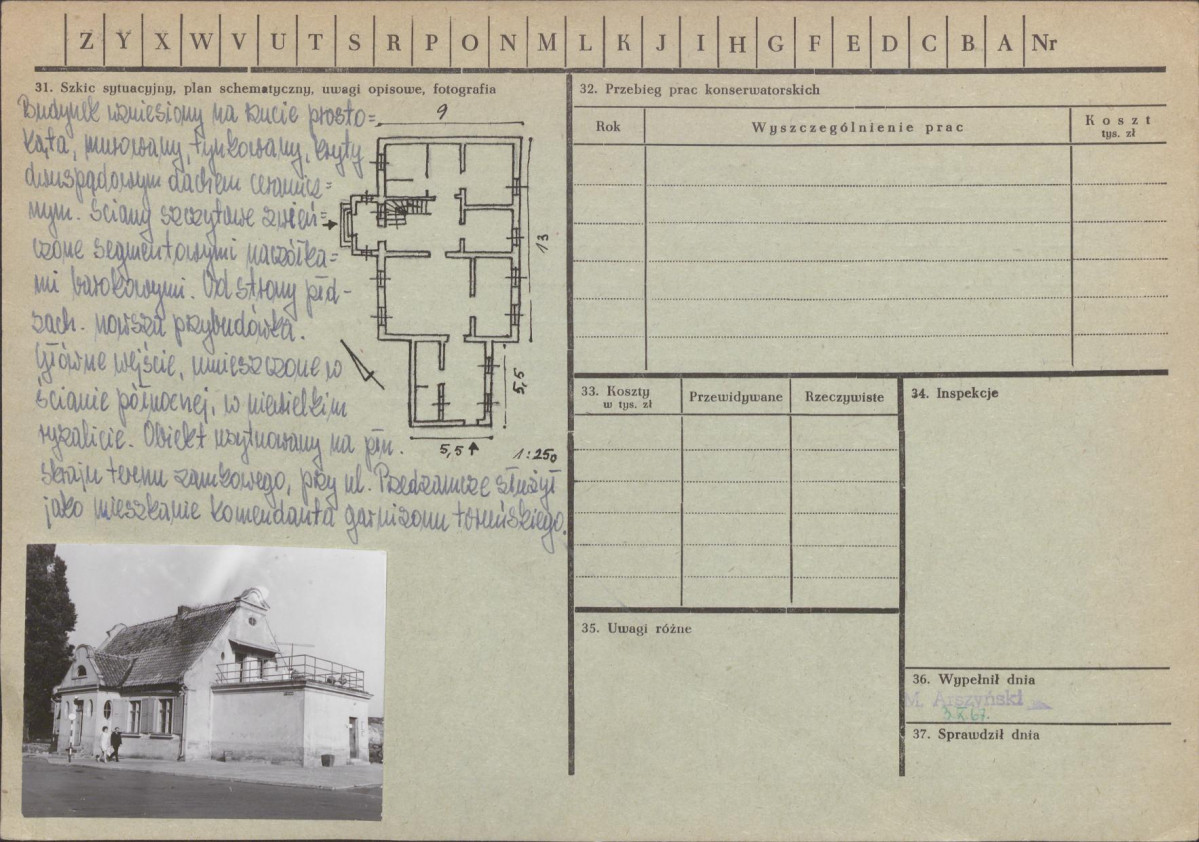 Z Y X W V U T S R P O N M L K J I H G F E D C B A Nr
31. Szkic sytuacyjny, plan schematyczny, uwagi opisowe, fotografia
Budynek wzniesiony na rzucie prosto=
kąta, murowany, tynkowany, kryty
dwuspadowym dachem ceramicz=
nym. Ściany szczytowe zwień=
czone segmentowymi naczółka=
mi barokowymi. Od strony płd-
zach. nowsza przybudówka.
Główne wejście, umieszczone w
ścianie północnej, w niewielkim
ryzalicie. Obiekt usytuowany na płn.
skraju terenu zamkowego, przy ul. Przedzamcze służył
jako mieszkanie komendanta garnizonu toruńskiego.
9
13
5,5
5,5
1:250
32. Przebieg prac konserwatorskich
Rok
Wyszczególnienie prac
Koszt
tys. zł
33. Koszty
w tys. zł
Przewidywane
Rzeczywiste
34. Inspekcje
35. Uwagi różne
36. Wypełnił dnia
M. Arszyński
3.X.67.
37. Sprawdził dnia